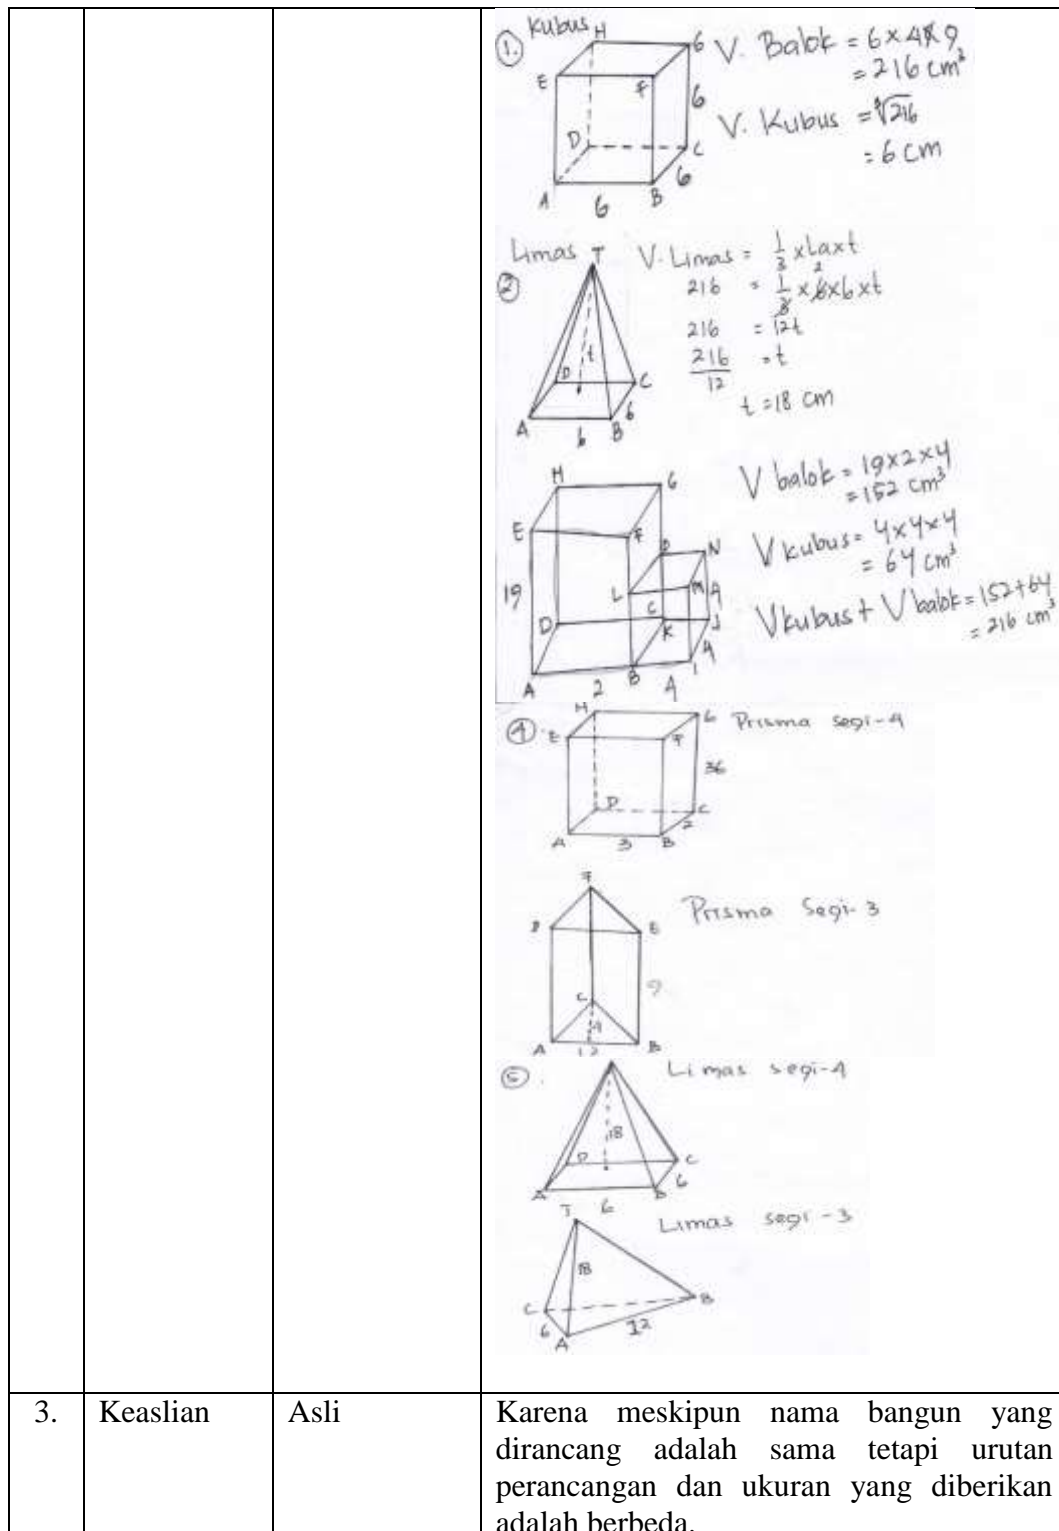 1. Kubus
H
G
E
F
6
D
C
6
A
6
B
V. Balok = 6 x 4 x 9
= 216 cm³
V. Kubus = ∛216
= 6 cm
Limas
2
T
t
D
C
6
A
6
B
V. Limas = 1/3 x La x t
216 = 1/3 x 6 x 6 x t
2
216 = 12t
216/12 = t
t = 18 cm
H
G
E
F
O
N
19
L
M
4
D
C
K
J
4
A
2
B
4
I
V balok = 19x2x4
= 152 cm³
V kubus = 4x4x4
= 64 cm³
V kubus + V balok = 152+64
= 216 cm³
4
H
G
Prisma segi-4
E
F
36
D
C
2
A
3
B
F
Prisma Segi-3
D
E
9
C
4
A
12
B
5
Limas segi-4
18
D
C
6
A
B
6
T
Limas segi-3
18
C
B
6
A
12
3.
Keaslian
Asli
Karena meskipun nama bangun yang
dirancang adalah sama tetapi urutan
perancangan dan ukuran yang diberikan
adalah berbeda.